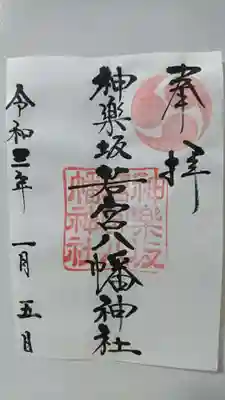 奉拝
神楽坂若宮八幡神社
神楽坂
若宮八
幡神社
令和三年 一月 五日